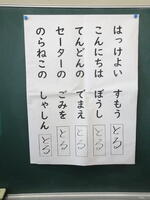 はっけよい すもう とる
こんにちは ぼうし とる
てんどんの でまえ とる
セーターの ごみを とる
のらねこの しゃしん とる